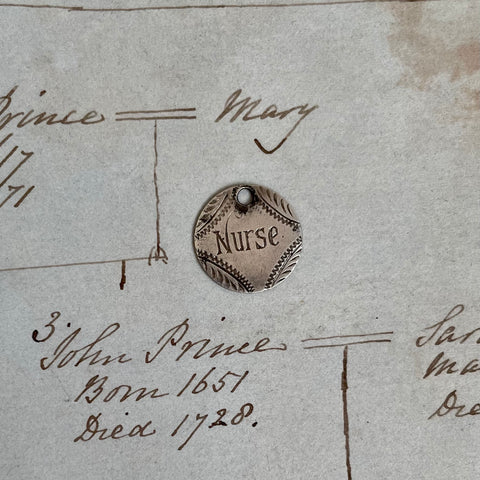 Prince
Mary
17
71
Nurse
3. John Prince
Born 1651
Died 1728.
Sar
Ma
Die